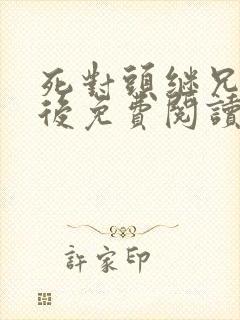 死對頭继兄
後免費閱讀
許家印